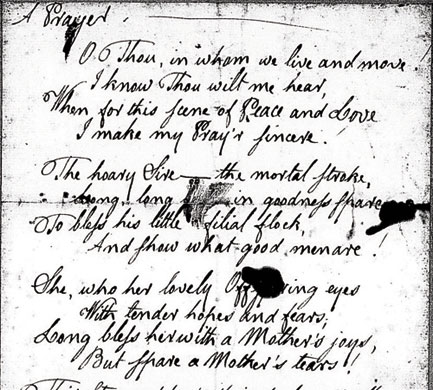 A Prayer.
O Thou, in whom we live and move!
I know Thou wilt me hear,
When for this scene of Peace and Love
I make my Pray'r sincere.
The hoary Sire — the mortal stroke,
Long, long in goodness spare,
To bless his little filial flock,
And show what good men are!
She, who her lovely Offspring eyes
With tender hopes and fears,
Long bless her with a Mother's joys,
But spare a Mother's tears!